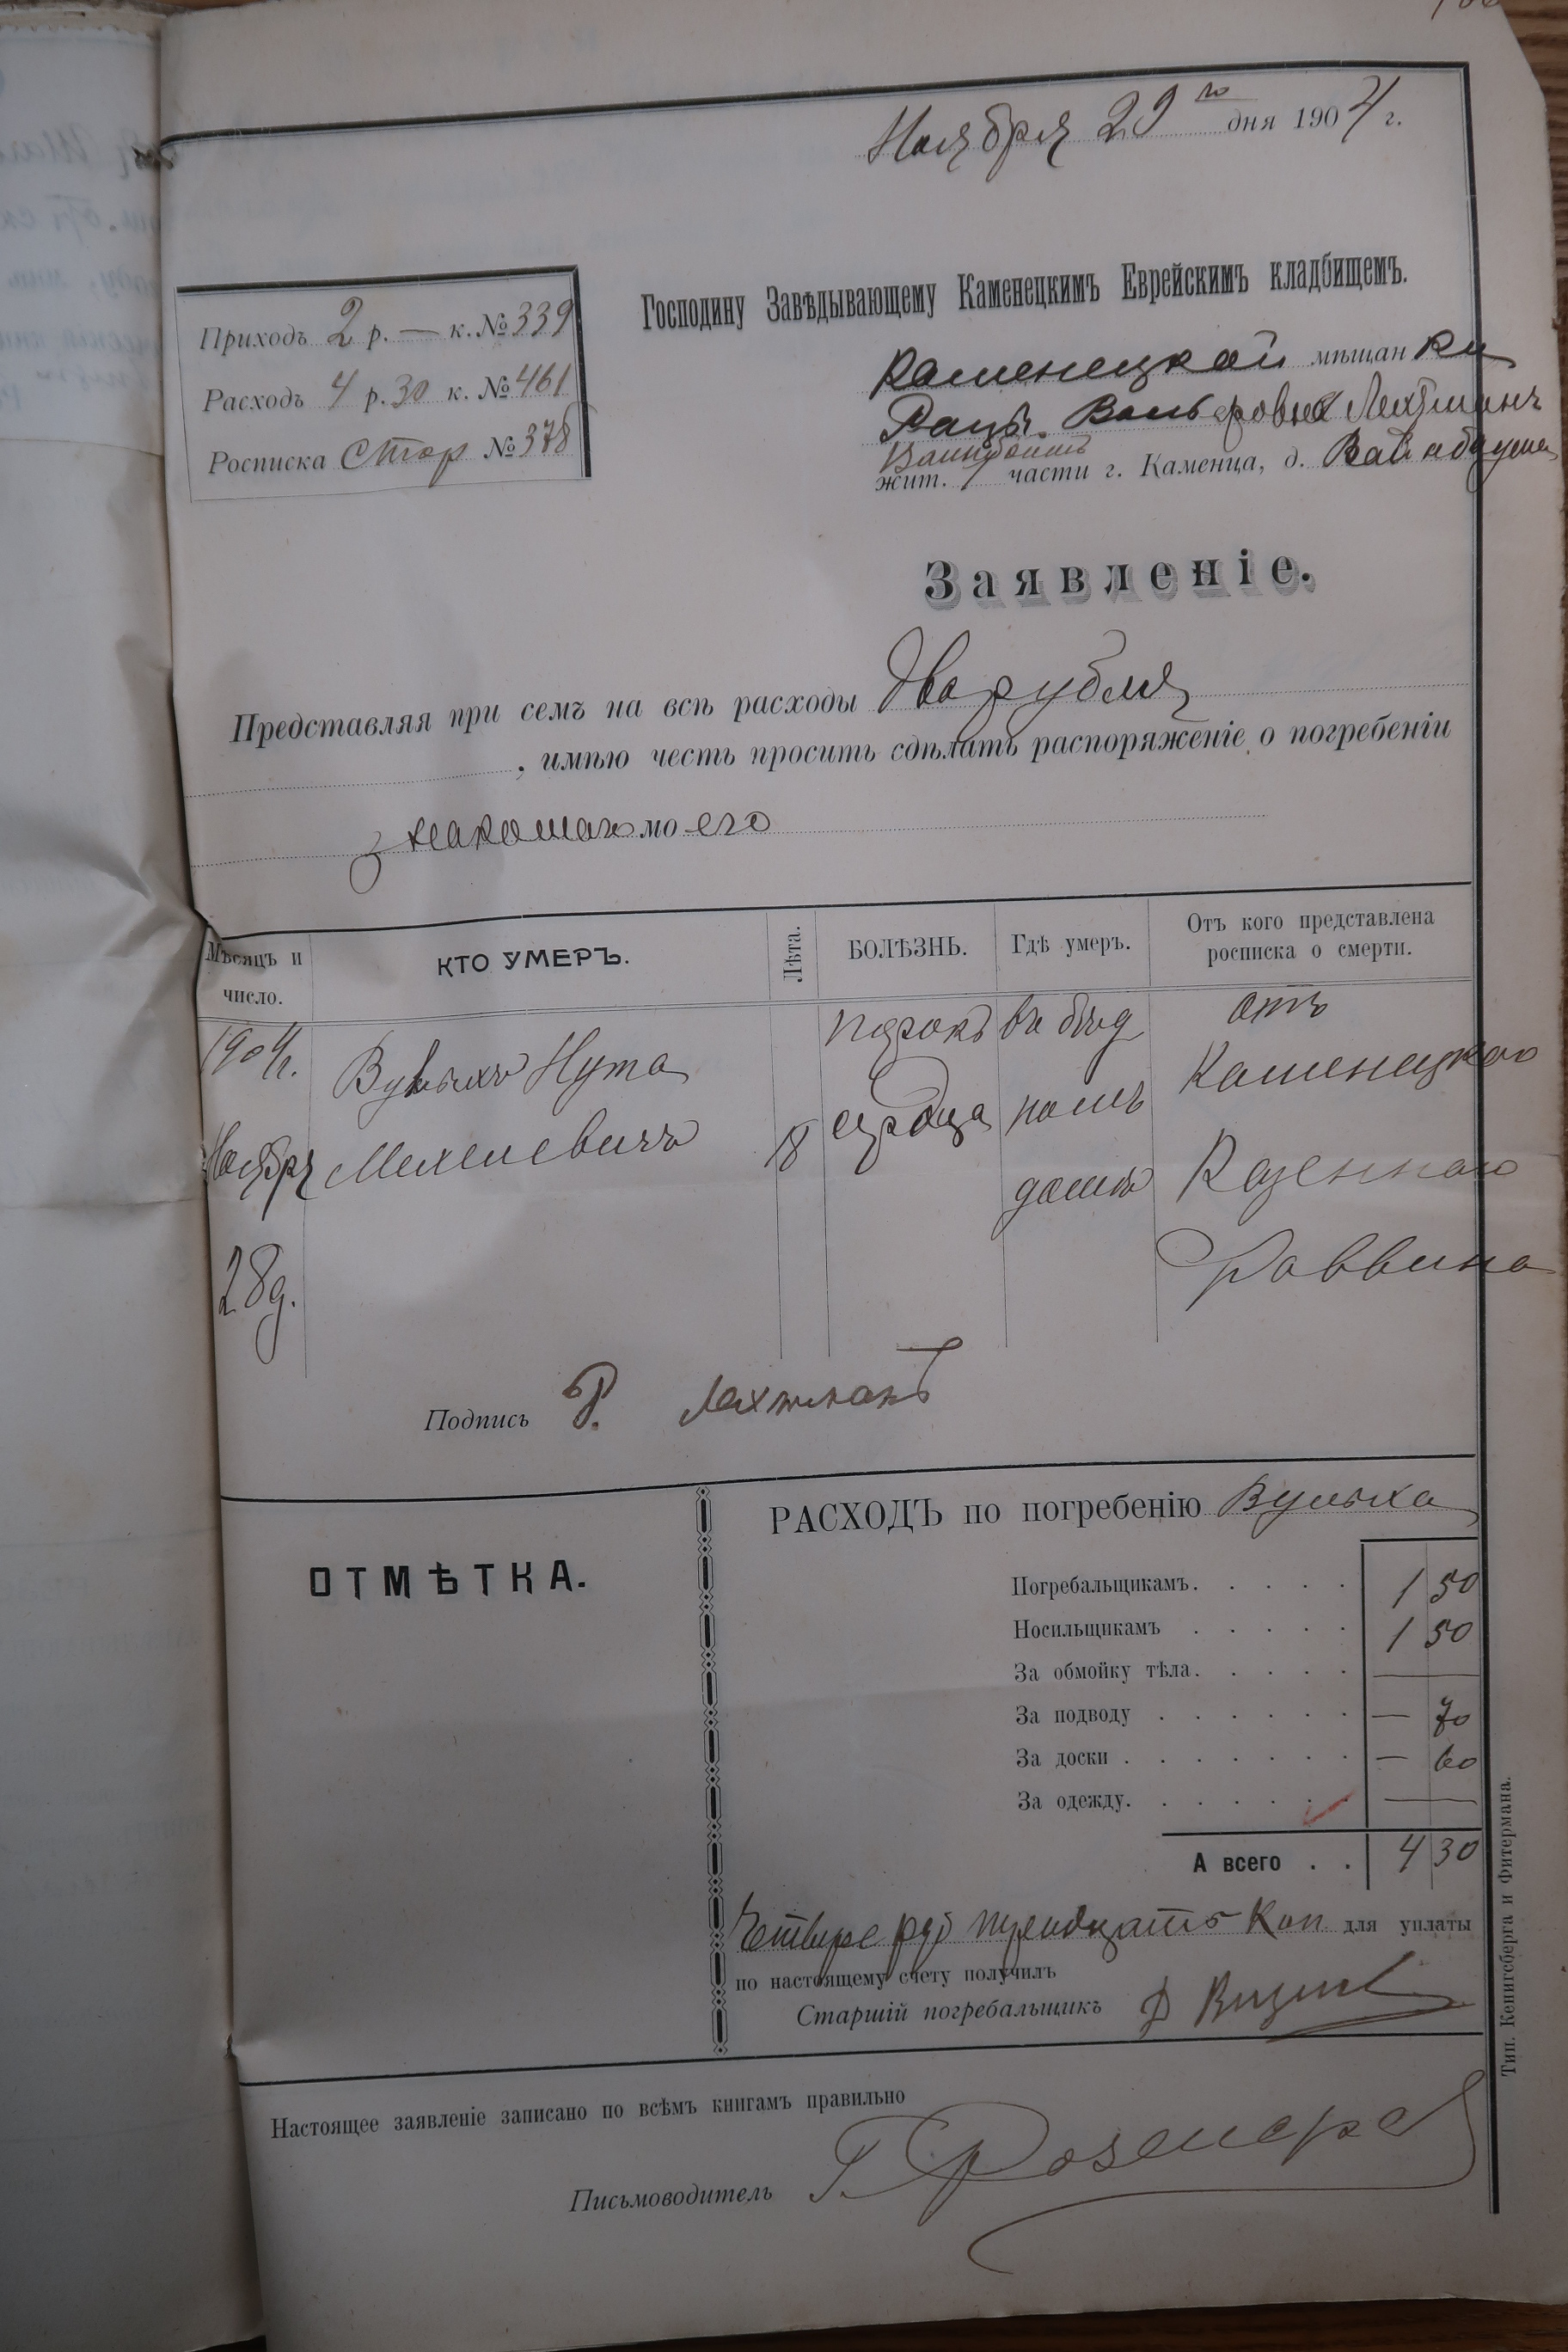 Ноября 29го дня 1904 г.
Приходъ 2 р. — к. № 339
Расходъ 4 р. 30 к. № 461
Росписка Стор № 378
Господину Завѣдывающему Каменецкимъ Еврейскимъ кладбищемъ.
Каменецкой мѣщанки
Лехтманъ
жит. 1 части г. Каменца, д. Вайнбаума
Заявленіе.
Представляя при семъ на всѣ расходы два рубля
, имѣю честь просить сдѣлать распоряженіе о погребеніи
знакомаго моего
Мѣсяцъ и число.
КТО УМЕРЪ.
Лѣта.
БОЛѢЗНЬ.
Гдѣ умеръ.
Отъ кого представлена росписка о смерти.
1904г. Вульихъ Нута порокъ въ бѣд отъ
Каменецкаго
Ноября Мехелевичъ 18 сердца номъ
домѣ Казеннаго
28д. Раввина
Подпись Р. Лехтманъ
ОТМѢТКА.
РАСХОДЪ по погребенію Вульха
Погребальщикамъ. . . . . 1 50
Носильщикамъ . . . . . 1 50
За обмойку тѣла. . . . . —
За подводу . . . . . . — 70
За доски . . . . . . . — 60
За одежду. . . . . . —
А всего . . 4 30
Четыре руб тридцать коп для уплаты
по настоящему счету получилъ
Старшій погребальщикъ
Настоящее заявленіе записано по всѣмъ книгамъ правильно
Письмоводитель
Тип. Кенигсберга и Фитермана.